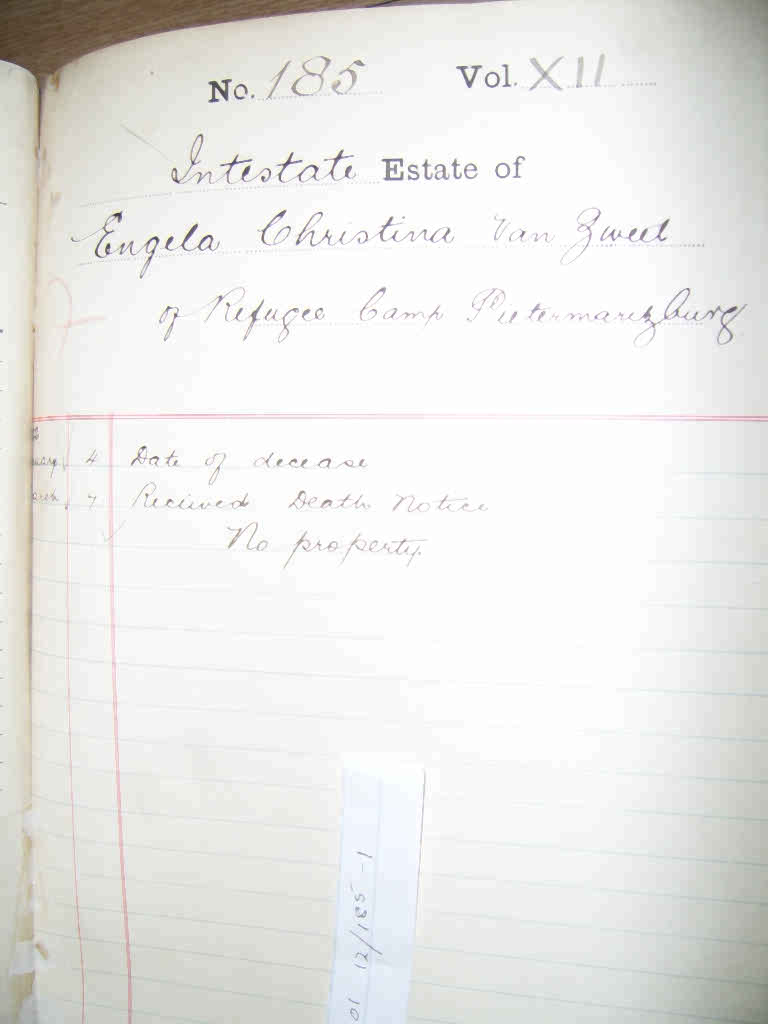 No. 185 Vol. XII
Intestate Estate of
Engela Christina Van Zweel
of Refugee Camp Pietermaritzburg
4 Date of decease
7 Recieved Death Notice
No property.
01 12/185-1